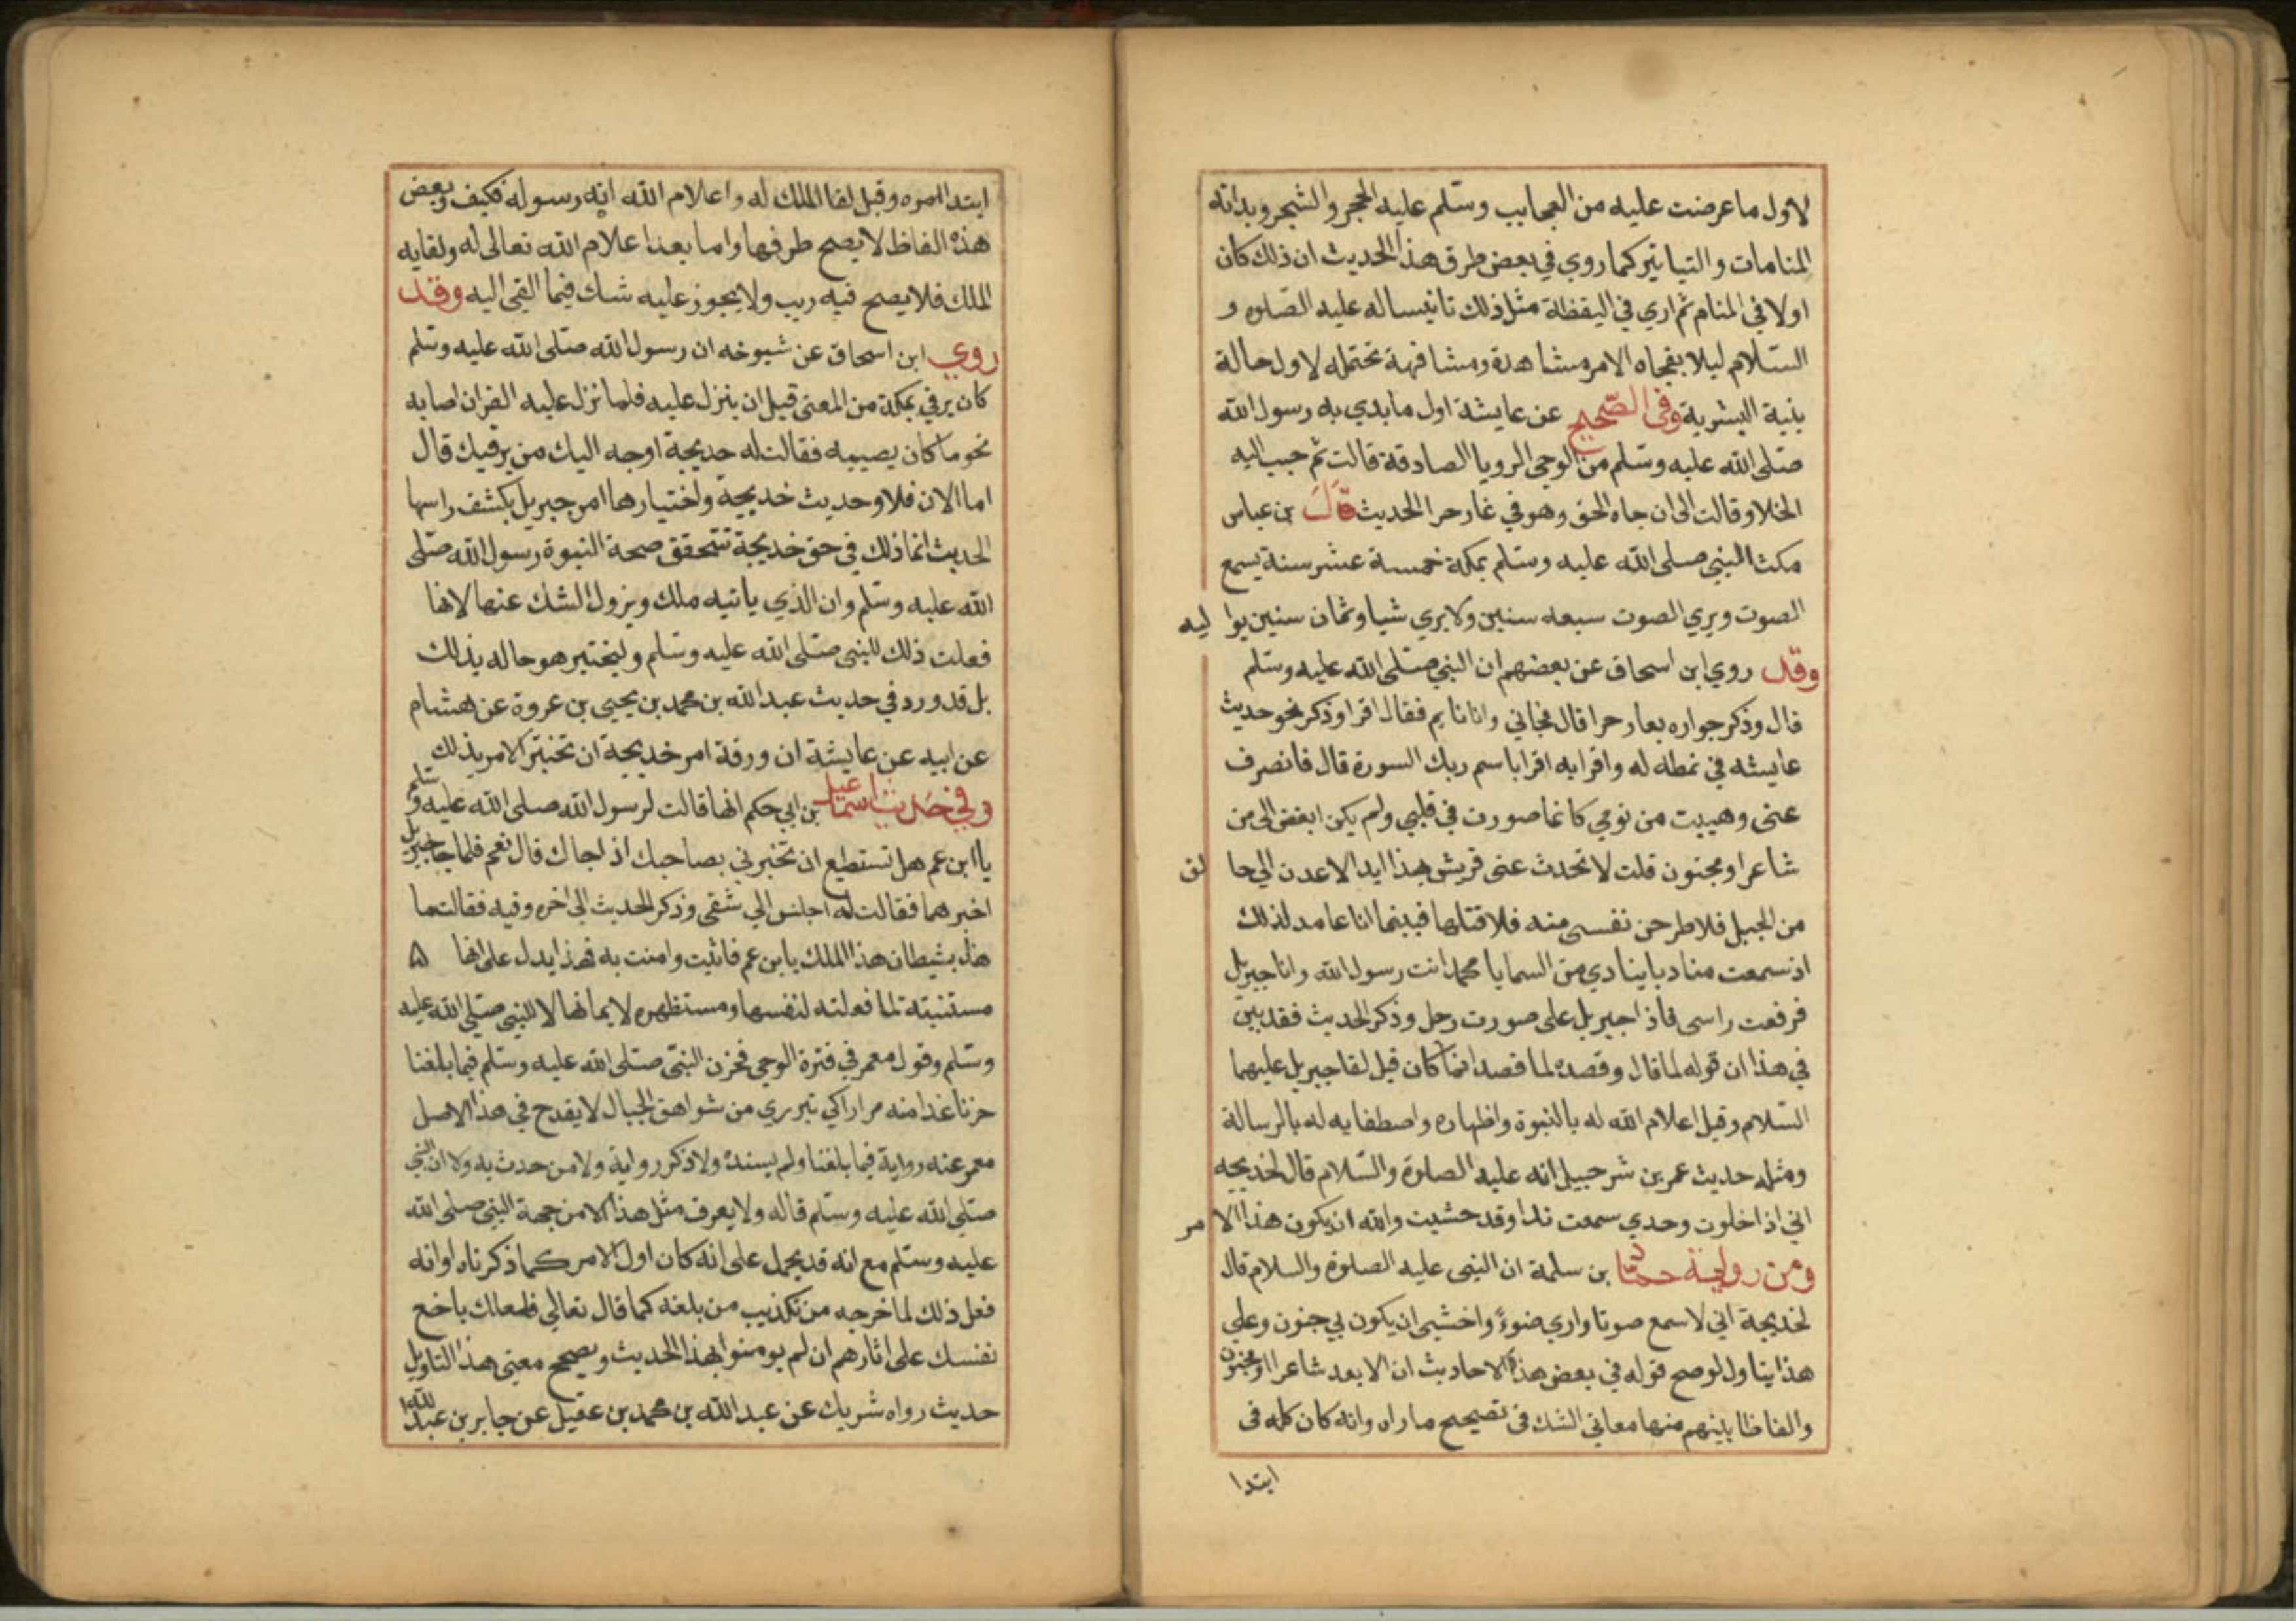 لاول ما عرضت عليه من العجايب وسلم عليه الحجر والشجر وبداته
المنامات والتباتير كما روي في بعض طرق هذا الحديث ان ذلك كان
اولا في المنام ثم اري في اليقظة مثل ذلك تانيسا له عليه الصلوه و
السلام ليلا يفجاه الامر مشاهدة ومشافهة تحتمله لاول حالة
بنية البشرية وفى الصحيح عن عايشة اول ما بدي به رسول الله
صلى الله عليه وسلم من الوحى الرويا الصادقة قالت ثم حبب اليه
الخلا وقالت الى ان جاه الحق وهو في غار حرا الحديث قال بن عباس
مكث النبي صلى الله عليه وسلم بمكة خمسة عشر سنة يسمع
الصوت ويري الصوت سبعه سنين ولا يري شيا وثمان سنين يوا ليه
وقد روي ابن اسحاق عن بعضهم ان النبي صلى الله عليه وسلم
قال وذكر جواره بعار حرا قال فجاني وانا نايم فقال اقرا وذكر نحو حديث
عايشه في نمطه له واقرايه اقرا باسم ربك السورة قال فانصرف
عنى وهببت من نومي كانما صورت في قلبي ولم يكن ابغض الى من
شاعر او مجنون قلت لا تحدث عنى قريش بهذا ابدا لاعدن الي حا لق
من الجبل فلا طرحن نفسى منه فلا قتلها فبينما انا عامد لذلك
اذ سمعت مناديا ينادي من السما يا محمد انت رسول الله وانا جبريل
فرفعت راسى فاذا جبريل على صورت رجل وذكر الحديث فقد بين
في هذا ان قوله لما قال وقصده لما قصد انما كان قبل لقا جبريل عليهما
السلام وقبل اعلام الله له بالنبوة واظهاره واصطفايه له بالرسالة
ومثله حديث عمر بن شرحبيل انه عليه الصلوة والسلام قال لخديجه
اني اذا خلوت وحدي سمعت ندا وقد خشيت والله ان يكون هذا الا مر
ومن رواية حماد بن سلمة ان النبى عليه الصلوة والسلام قال
لخديجة اني لاسمع صوتا واري ضوءً واخشى ان يكون بي جنون وعلي
هذا يتاول لو صح قوله في بعض هذه الاحاديث ان الابعد شاعرا او مجنون
والفاظا يفهم منها معاني الشك في تصحيح ما راه وانه كان كله فى
ابتدا
ابتدا امره وقبل لقا الملك له واعلام الله انه رسوله فكيف وبعض
هذه الفاظ لا يصح طرقها واما بعد اعلام الله تعالى له ولقايه
الملك فلا يصح فيه ريب ولا يجوز عليه شك فيما القى اليه وقد
روي ابن اسحاق عن شيوخه ان رسول الله صلى الله عليه وسلم
كان يرقي بمكة من المعنى قبل ان ينزل عليه فلما نزل عليه القران اصابه
نحو ما كان يصيبه فقالت له خديجة اوجه اليك من يرقيك قال
اما الان فلا وحديث خديجة واختيارها امر جبريل بكشف راسها
الحديث انما ذلك في حق خديجة تتحقق صحة النبوة رسول الله صلى
الله عليه وسلم وان الذي ياتيه ملك ويزول الشك عنها لانها
فعلت ذلك للنبى صلى الله عليه وسلم وليختبر هو حاله بذلك
بل قد ورد في حديث عبد الله بن محمد بن يحيى بن عروة عن هشام
عن ابيه عن عايشة ان ورقة امر خديجة ان تختبر الامر بذلك
وفي حديث اسماعيل بن ابي حكم انها قالت لرسول الله صلى الله عليه وسلم
يا ابن عم هل تستطيع ان تخبرني بصاحبك اذا جاك قال نعم فلما جا جبريل
اخبرهما فقالت له اجلس الي شقى وذكر الحديث الي اخره وفيه فقالت ما
هذا بشيطان هذا الملك يا بن عم فاثبت وامنت به فهذا يدل على انها ۵
مستثبتة لما فعلته لنفسها ومستظهره لايمانها لا للنبى صلى الله عليه
وسلم وقول معمر في فترة الوحي فحزن النبى صلى الله عليه وسلم فيما بلغنا
حزنا غدا منه مرارا كي تبرري من شواهق الجبال لا يقدح في هذا الاصل
معمر عنه رواية فيما بلغنا ولم يسنده ولا ذكر رواية ولا من حدث به ولا ان النبي
صلى الله عليه وسلم قاله ولا يعرف مثل هذا الا من جهة النبى صلى الله
عليه وسلم مع انه قد يحمل على انه كان اول الامر كما ذكرناه او انه
فعل ذلك لما خرجه من تكذيب من بلغه كما قال تعالي فلعلك باخع
نفسك على اثارهم ان لم يومنوا بهذا الحديث ويصحح معنى هذا التاويل
حديث رواه شريك عن عبد الله بن محمد بن عقيل عن جابر بن عبد الله